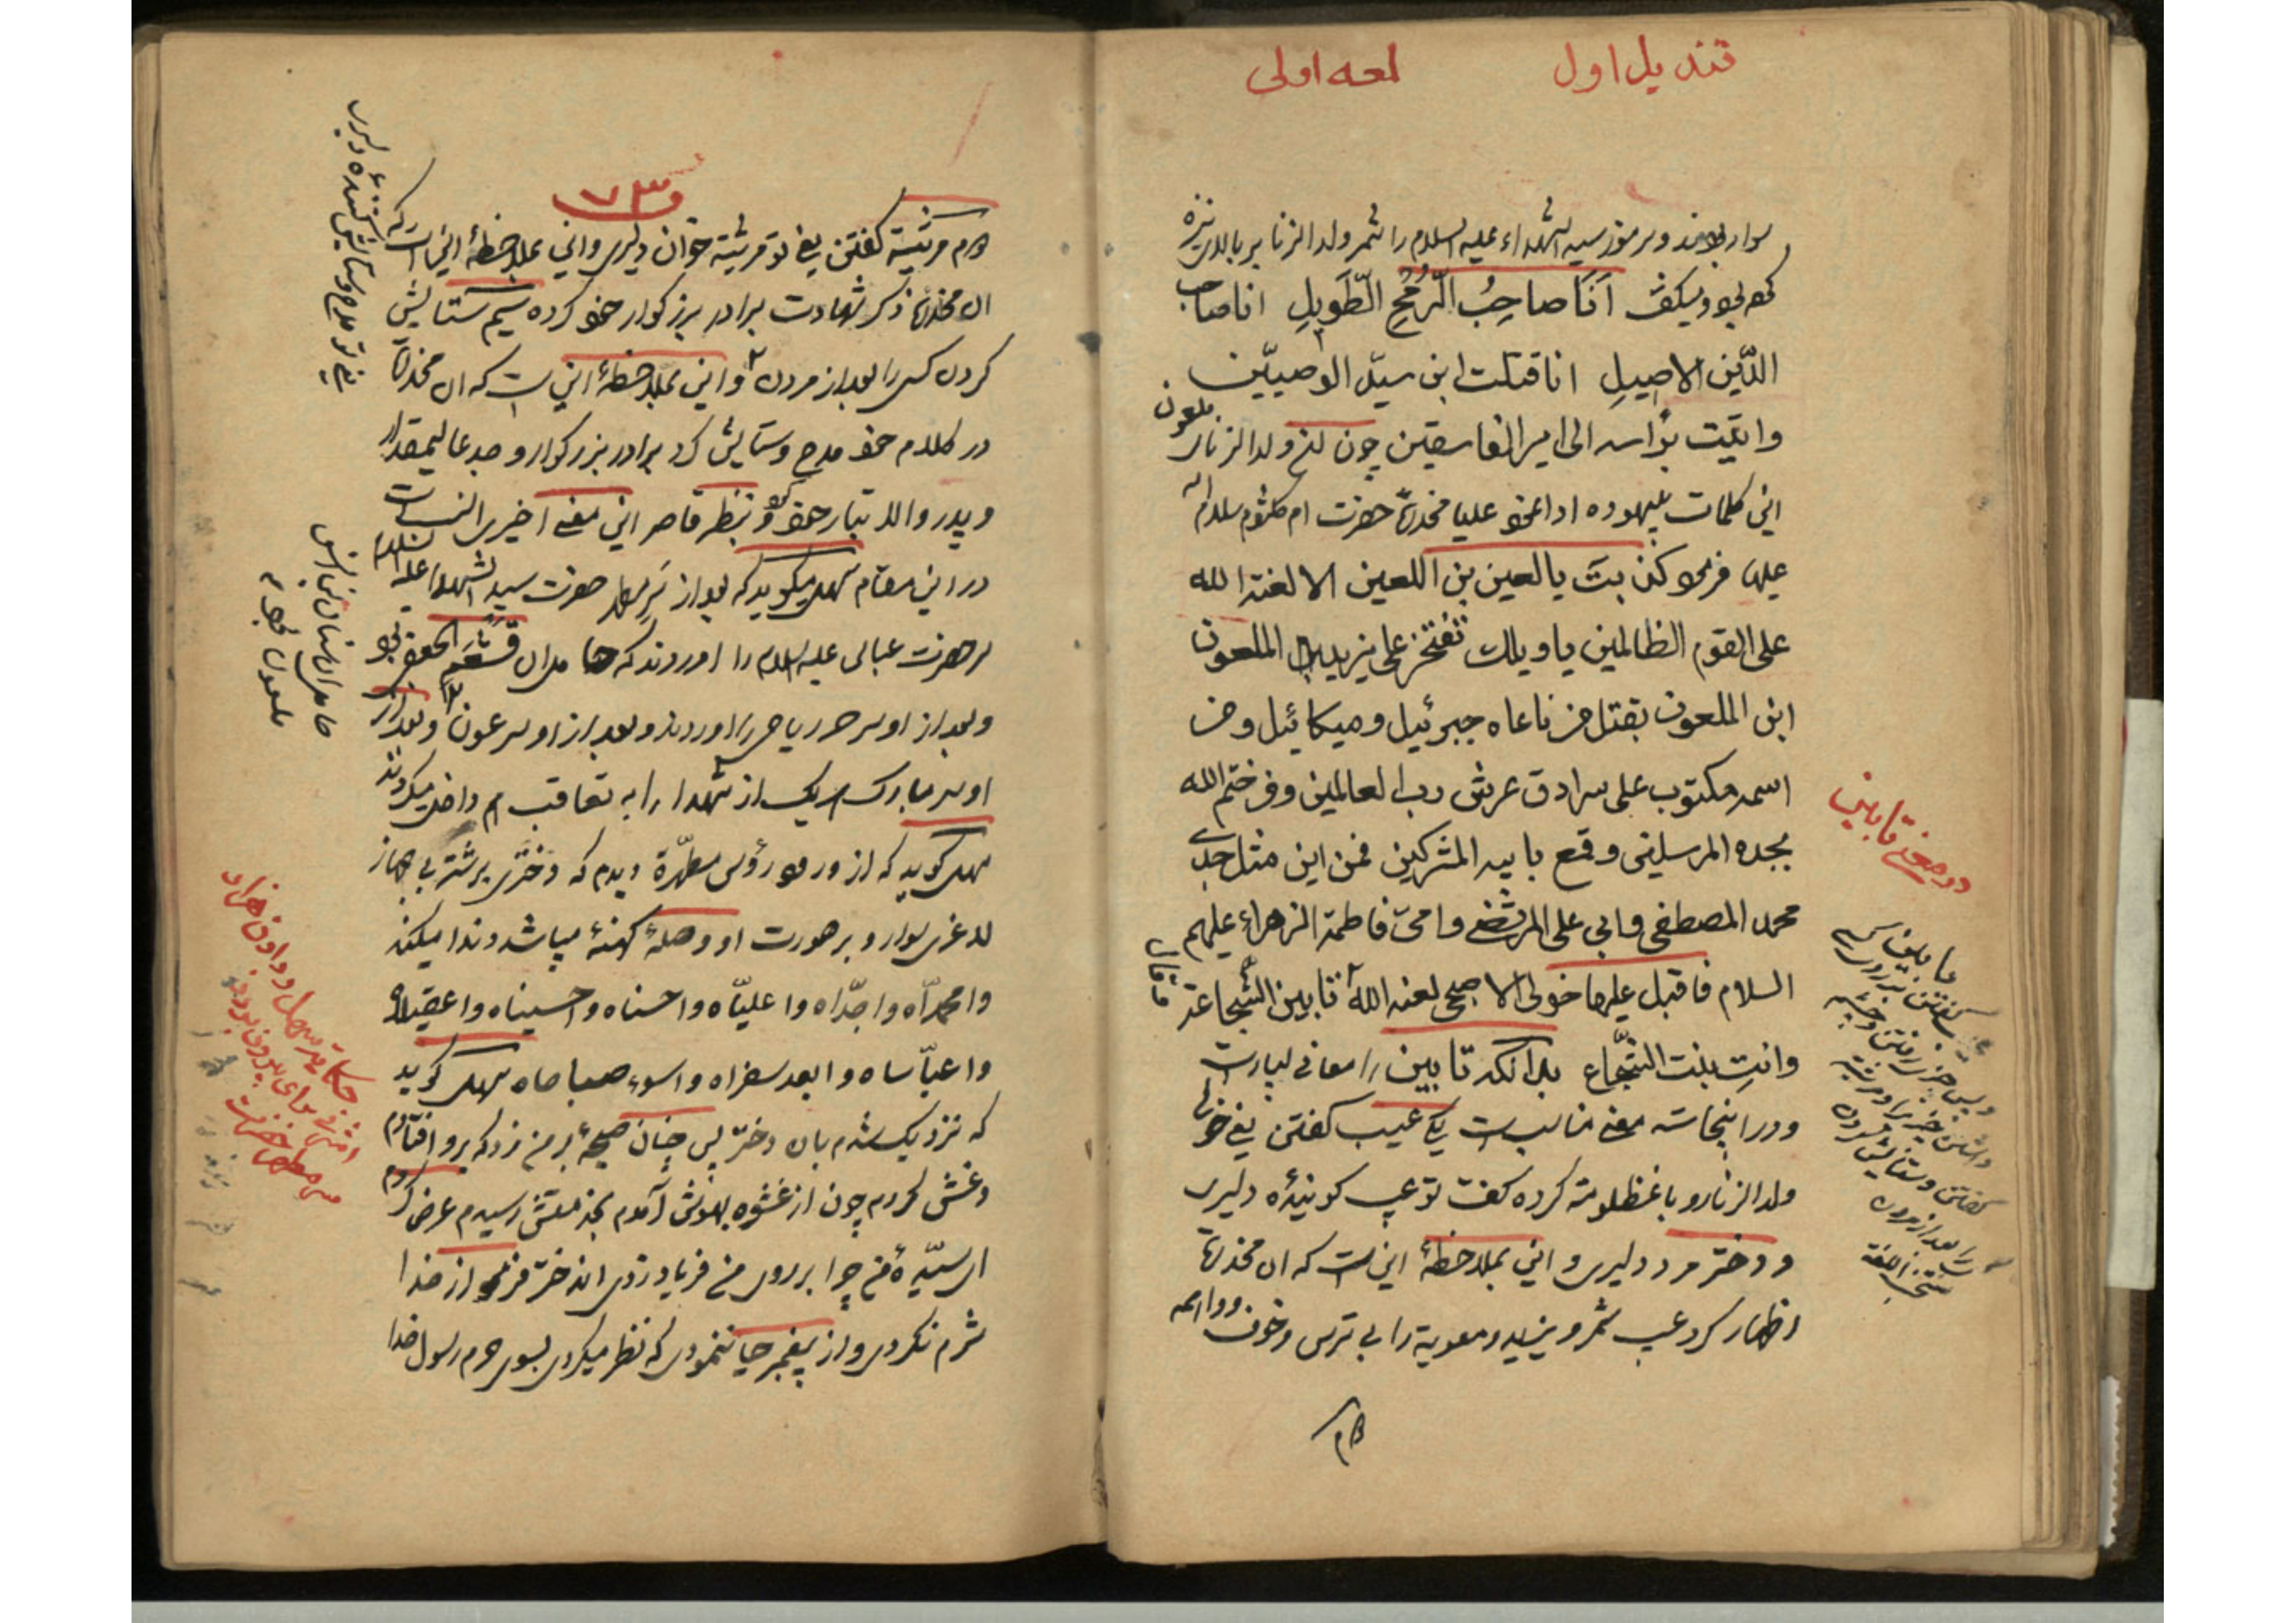 قندیل اول
لمعه اولی
سوار بودند و سر منور سید الشهداء علیه السلام را شمر ولد الزنا بر بالای نیزه
کرده بود و میکفت اَنَا صاحِبُ الرُّمْحِ الطَّوِیلِ انا صاحب
الدّین الاصیلِ انا قتلت ابن سیّد الوصیّین
واتیت براسه الی امیر الفاسقین چون لعین ولد الزنا
ملعون
این کلمات بیهوده ادا نمود علیا مخدره حضرت ام کلثوم سلام الله
علیها فرمود کذبت یا لعین بن اللعین الا لعنة الله
علی القوم الظالمین یا ویلك تفتخر علی یزید الملعون
ابن الملعون بقتل من ناغاه جبرئیل و میکائیل و من
اسمه مکتوب علی سرادق عرش رب العالمین و من ختم الله
بجده المرسلین و قمع بابیه المشرکین فمن این مثل جدی
محمد المصطفی و ابی علی المرتضی و امی فاطمة الزهراء علیهم
السلام فاقبل علیها خولی الاصبحی لعنه الله تابین الشجاعة
وانتِ بنت الشّجاع بدانکه تابین را معانی بسیارست
و در اینجا سه معنی مناسبست یکی عیب کفتن یعنی خولی
ولد الزنا رو با مظلومه کرده کفت تو عیب کوینده دلیری
و دختر مرد دلیری و این بملاحظهٔ اینست که ان مخدره
اظهار کرد عیب شمر و یزید و معویه را بی ترس و خوف و واهمه
دوم
در معنی تابین
منتخب اللغة
٧٣
دوم مرثیة کفتن یعنی تو مرثیة خوان دلیری و این بملاحظهٔ اینست که
ان مخدره ذکر شهادت برادر بزرکوار خود کرده سیم ستایش
کردن کسی را بعد از مردن و این بملاحظهٔ این ست که ان مخدره
در کلام خود مدح و ستایش کرد برادر بزرکوار و جد عالیمقدار
و پدر والا تبار خود و بنظر قاصر این معنی اخیری انسبست
در این مقام سهل میکوید که بعد از سر مطهر حضرت سید الشهدا علیه السلام
سر حضرت عباس علیه السلام را اوردند که حامل ان قشعم الجعفی بود
و بعد از او سر حر ریاحی را اوردند و بعد از او سر عون و بعد از
او سر مبارك هر یک از شهدا را به تعاقب هم داخل میکردند
سهل کوید که از ورود رؤس مطهّرة دیدم که دختری بر شتر بی جهاز
لاغری سوار و بر صورت او وصلهٔ کهنهٔ میباشد و ندا میکند
وا محمداه وا جدّاه وا علیّاه وا حسناه وا حسیناه وا عقیلاه
وا عبّاساه وا بعد سفراه وا سوء صباحاه سهل کوید
که نزدیک شدم بان دختر پس چنان صیحهٔ بر من زد که برو افتادم
و غش کردم چون از غشوه بهوش آمدم بخدمتش رسیدم عرض کردم
ای سیّدهٔ من چرا بر روی من فریاد زدی اندختر فرمود از خدا
شرم نکردی و از پیغمبر حیا ننمودی که نظر میکردی بسوی حرم رسول خدا